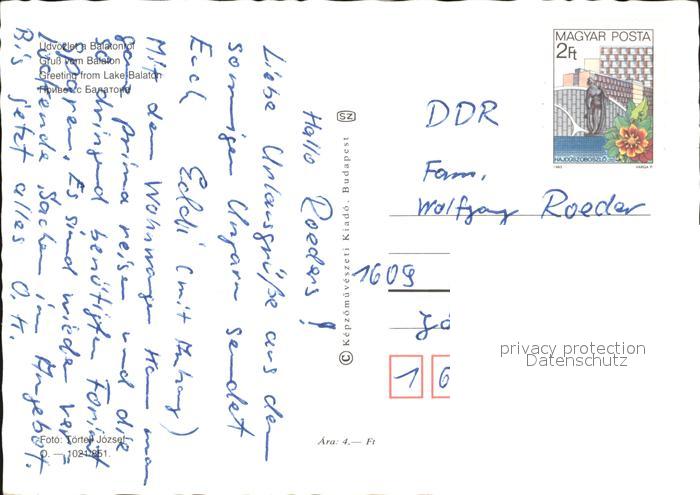 Üdvözlet a Balatonról
Gruß vom Balaton
Greeting from Lake Balaton
Привет с Балатона
Hallo Roeders!
Liebe Urlausgrüße aus dem
sonnigen Ungarn sendet
Euch Eddi (mit Anhang)
Mit dem Wohnwagen kann man
ganz prima reisen und die
so dringend benötigten Forint
sparen. Es sind wieder ver-
lockende Sachen im Angebot.
Bis jetzt alles O.K.
Fotó: Törtely József
O. — 1021/851.
SZ
© Képzőművészeti Kiadó, Budapest
Ára: 4.— Ft
MAGYAR POSTA
2Ft
HAJDÚSZOBOSZLÓ
1983 VARGA P.
DDR
Fam.
Wolfgang Roeder
1609
1 6
privacy protection
Datenschutz